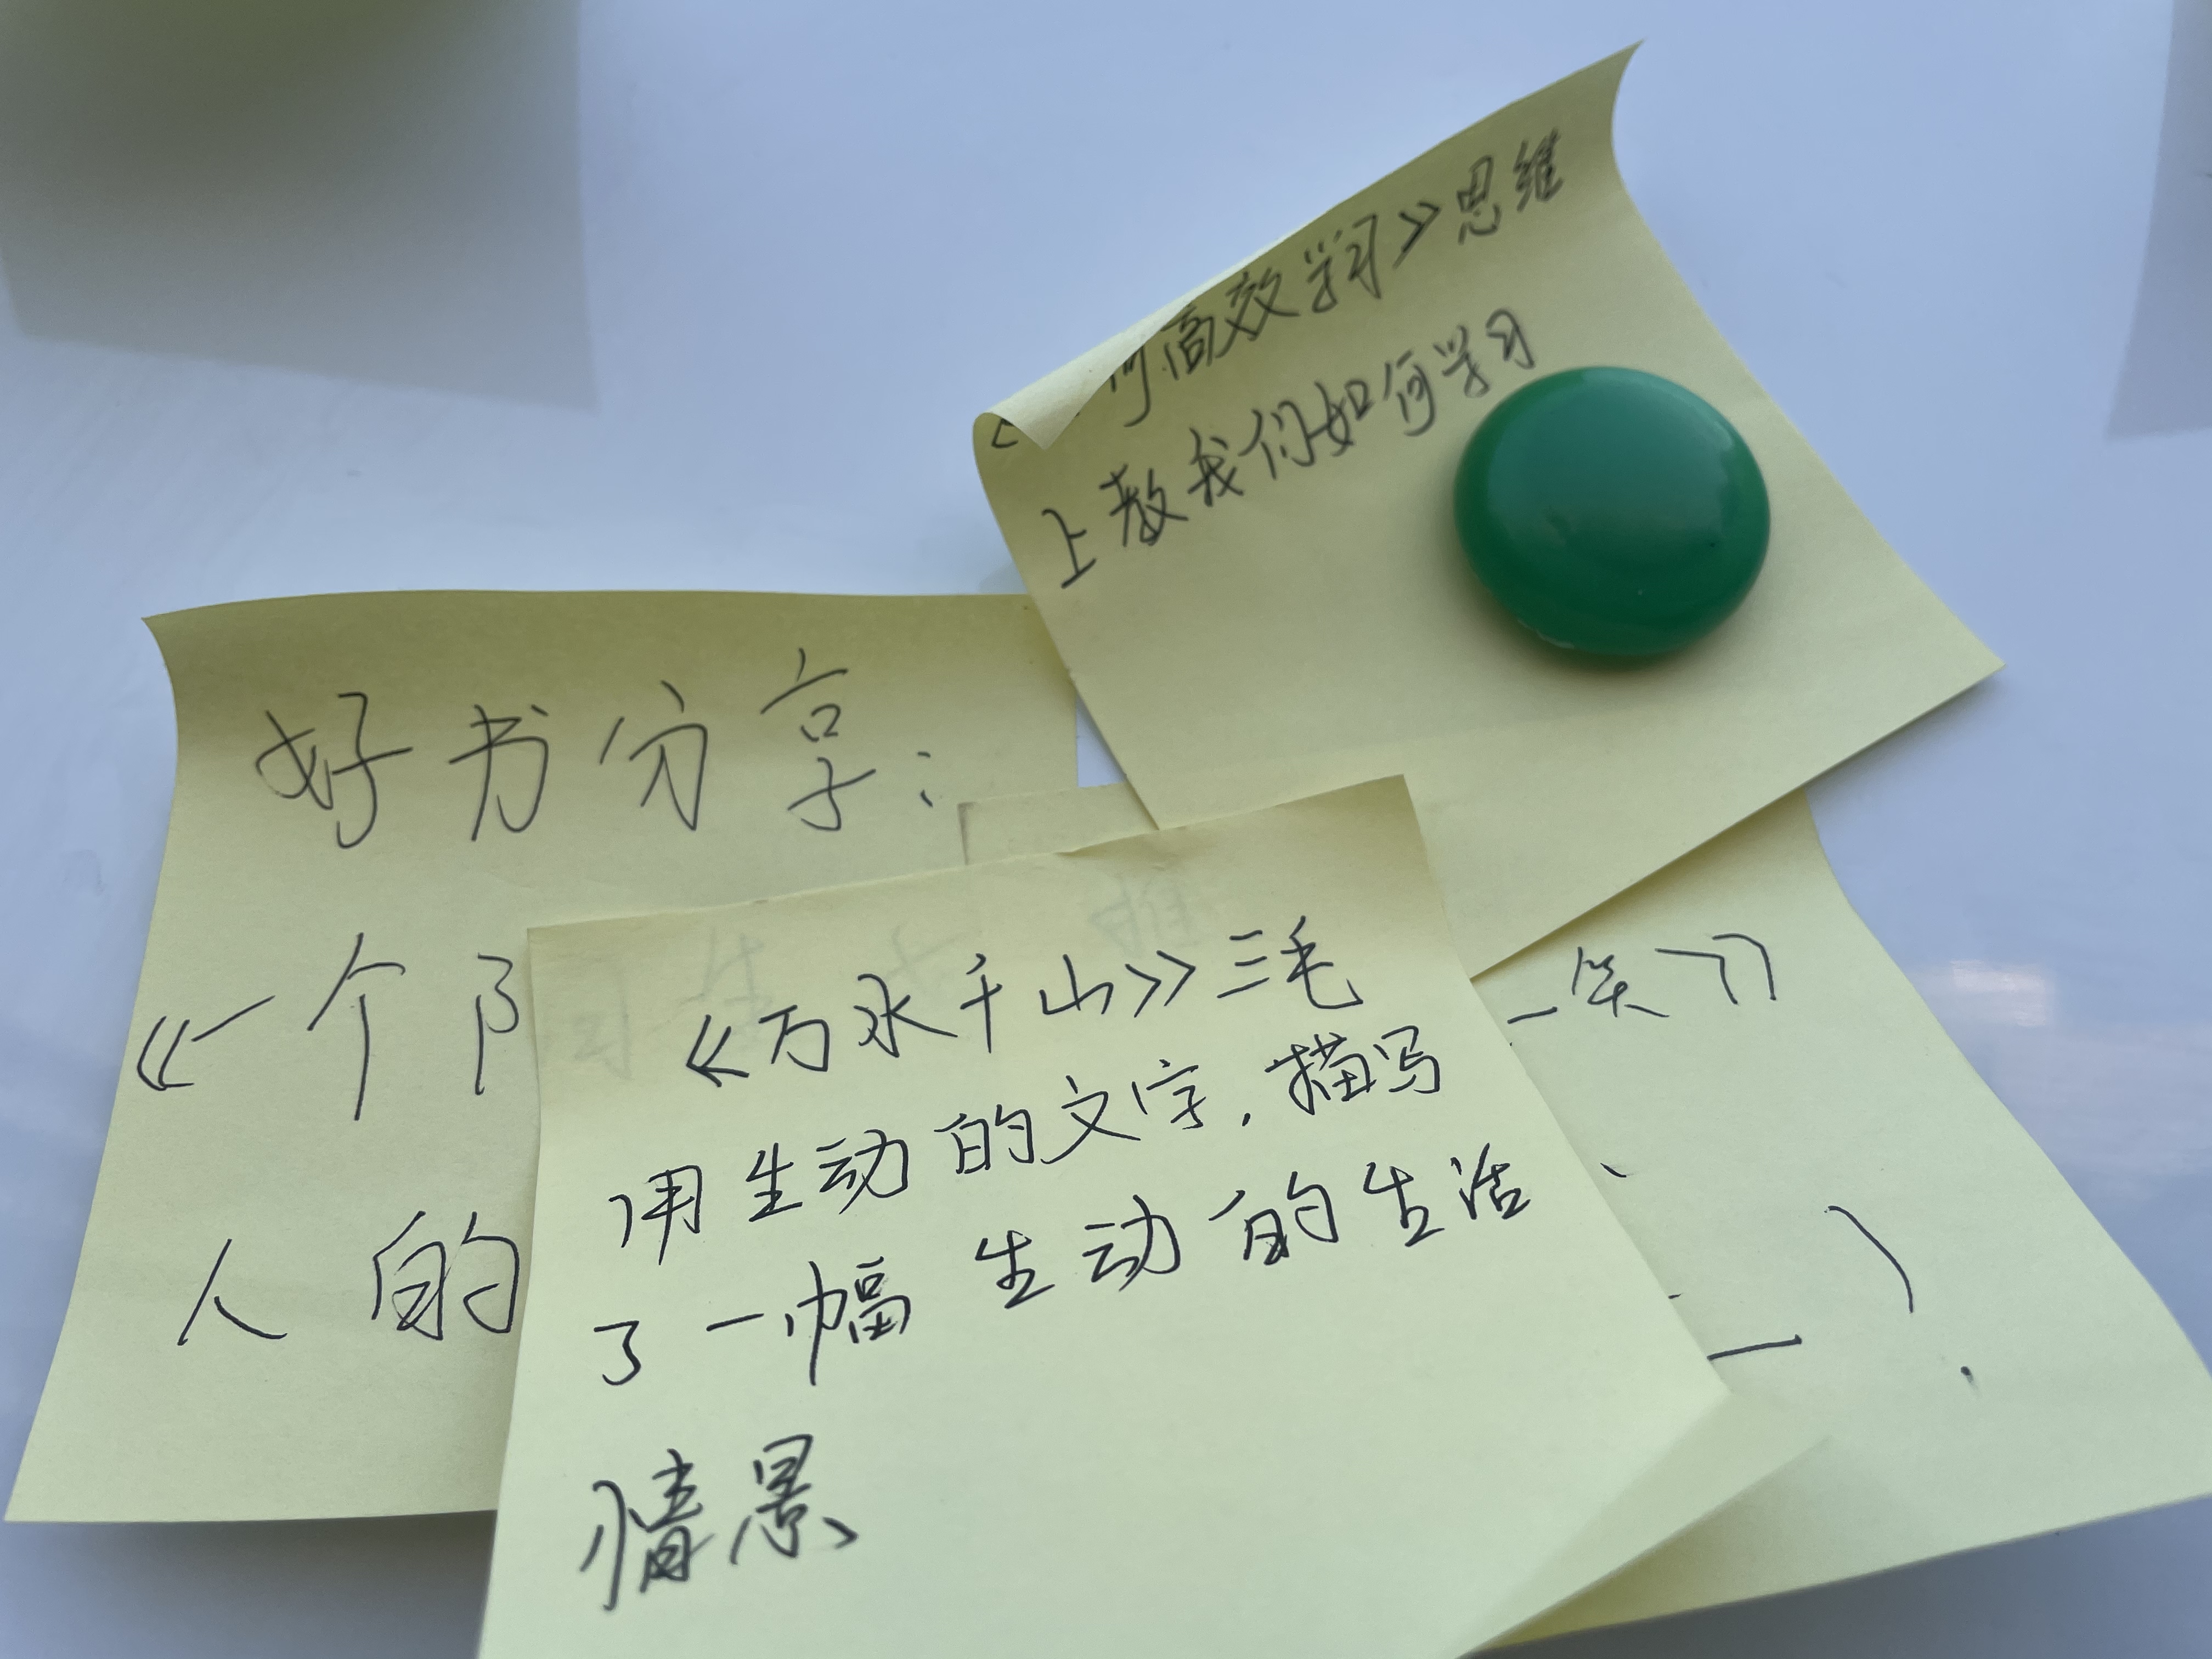 何高效学习》思维
上教我们如何学习
好书分享：
《一个
人的
《万水千山》三毛
用生动的文字，描写
了一幅生动的生活
情景
一笑》